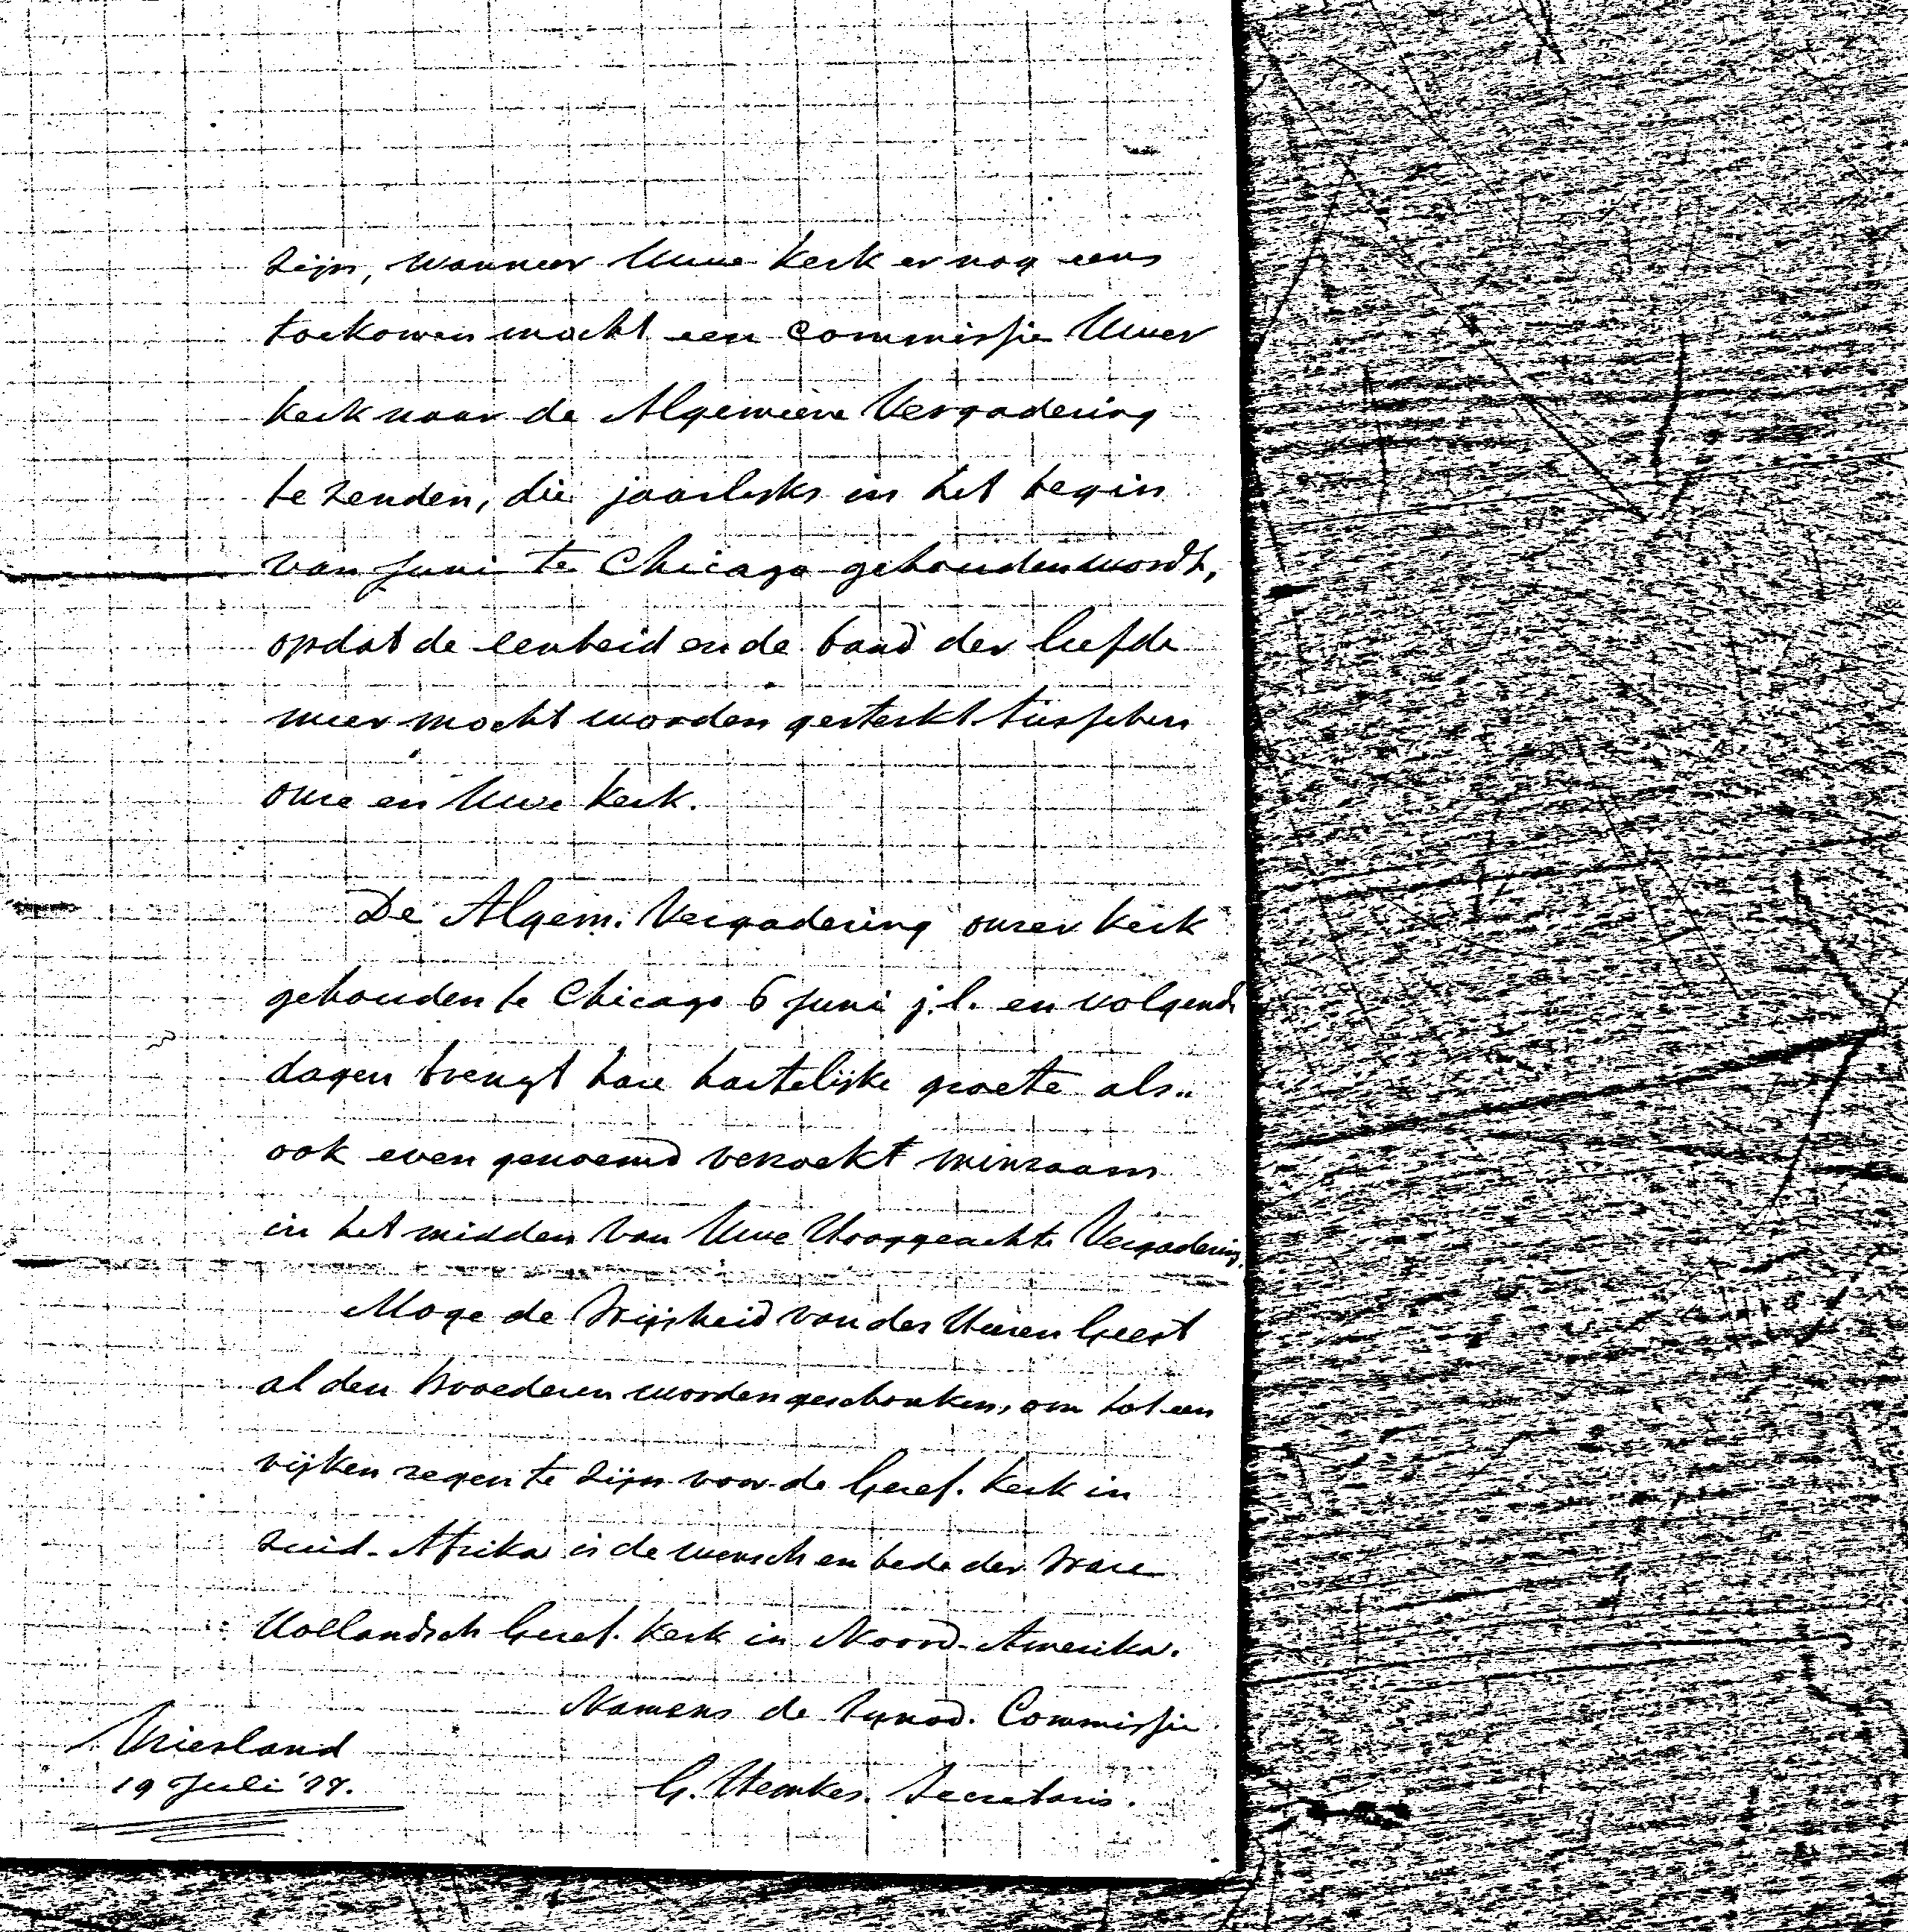 zijn, wanneer Uwe Kerk er nog eens
toekomen mocht een commissie Uwer
Kerk naar de Algemeene Vergadering
te zenden, die jaarlijks in het begin
van Juni te Chicago gehouden wordt,
opdat de eenheid en de band der liefde
meer mocht worden gesterkt tusschen
onze en Uwe Kerk.
De Algem. Vergadering onzer Kerk
gehouden te Chicago 6 Juni j.l. en volgende
dagen brengt hare hartelijke groete als..
ook even genoemd verzoekt minzaam
in het midden van Uwe Hooggeachte Vergadering.
Moge de Wijsheid van des Heeren Geest
al den broederen worden geschonken, om tot een
rijken zegen te zijn voor de Geref. Kerk in
Zuid-Afrika is de wensch en bede der Ware
Hollandsch Geref. Kerk in Noord-Amerika.
Namens de Synod. Commissie
Vriesland
19 Juli
G. Hemkes. Secretaris.